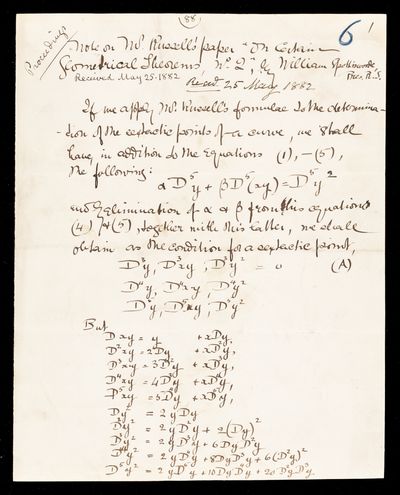 88
6
1
Proceedings
Note on Mr. Russell's paper "On certain
Geometrical Theorems No. 2", by William Spottiswoode,
Pres. R.S.
Received May 25. 1882
Recd. 25 May 1882
If we apply Mr. Russell's formulae to the determina-
-tion of the sextactic points of a curve, we shall
have, in addition to the equations (1), – (5),
the following:
αD⁵y + βD⁵(xy) = D⁵y²
and by elimination of α & β from this equations
(4) & (5), together with this latter, we shall
obtain as the condition for a sextactic point,
D³y, D³xy, D³y² = 0 (A)
D⁴y, D⁴xy, D⁴y²
D⁵y, D⁵xy, D⁵y²
But
Dxy = y + xDy,
D²xy = 2Dy + xD²y,
D³xy = 3D²y + xD³y,
D⁴xy = 4D³y + xD⁴y,
D⁵xy = 5D⁴y + xD⁵y,
Dy² = 2yDy
D²y² = 2yD²y + 2(Dy)²
D³y² = 2yD³y + 6DyD²y
D⁴y² = 2yD⁴y + 8DyD³y + 6(D²y)²
D⁵y² = 2yD⁵y + 10DyD⁴y + 20D²yD³y.